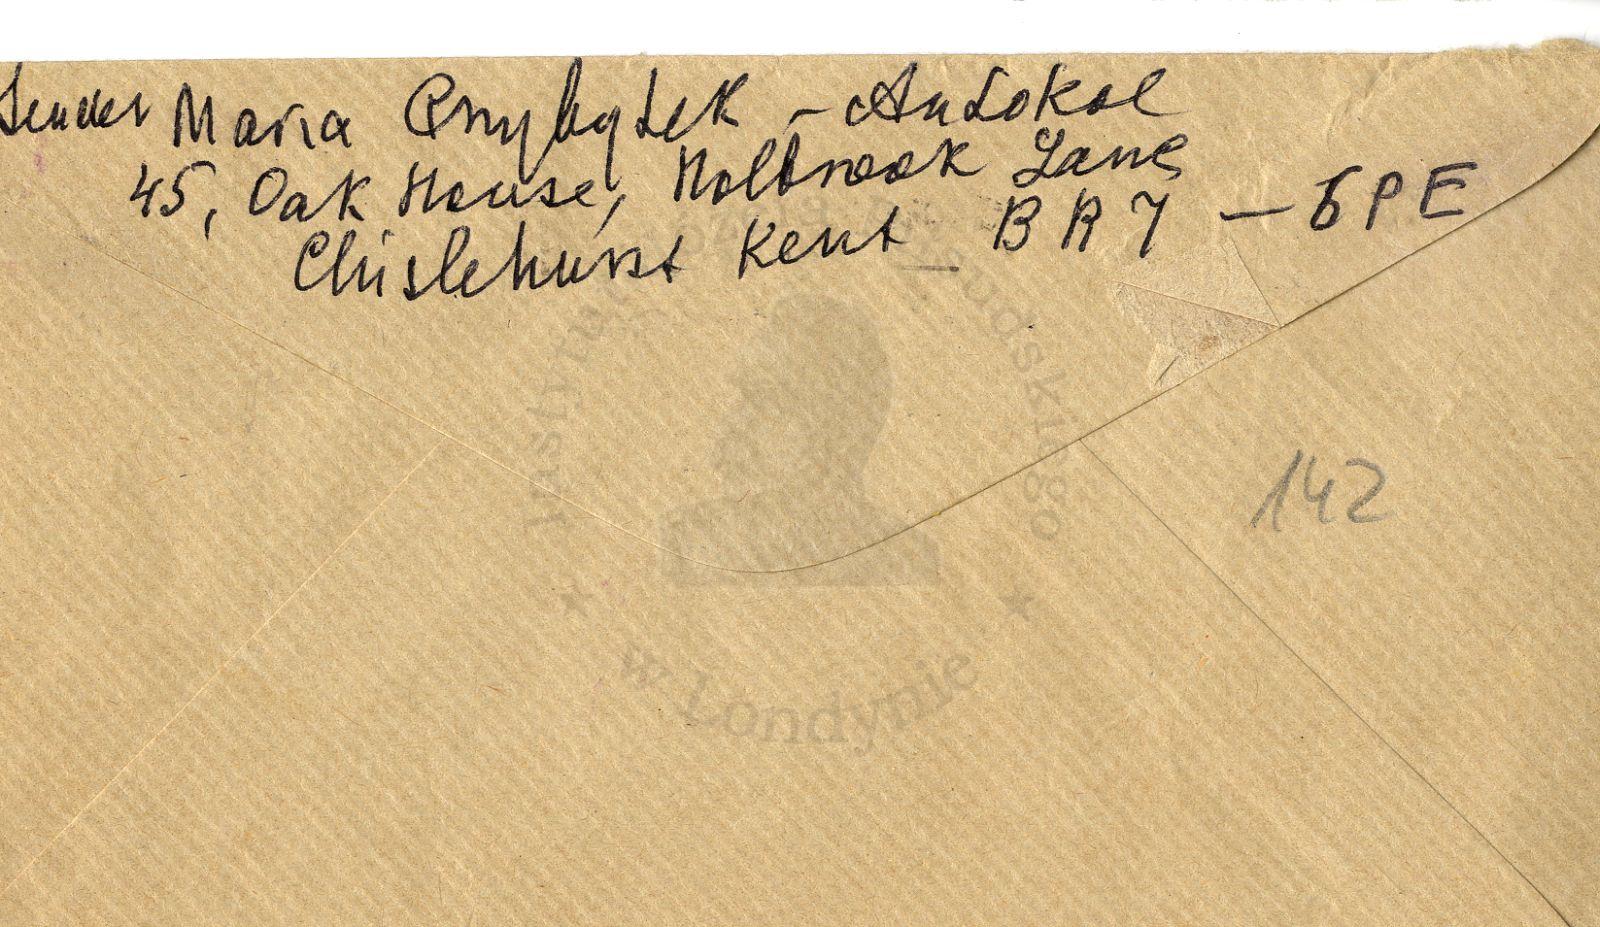 Sender Maria Przybytek - Antokol
45, Oak House, Holbrook Lane
Chislehurst Kent BR7 — 6PE
142
Instytut Józefa Piłsudskiego
w Londynie